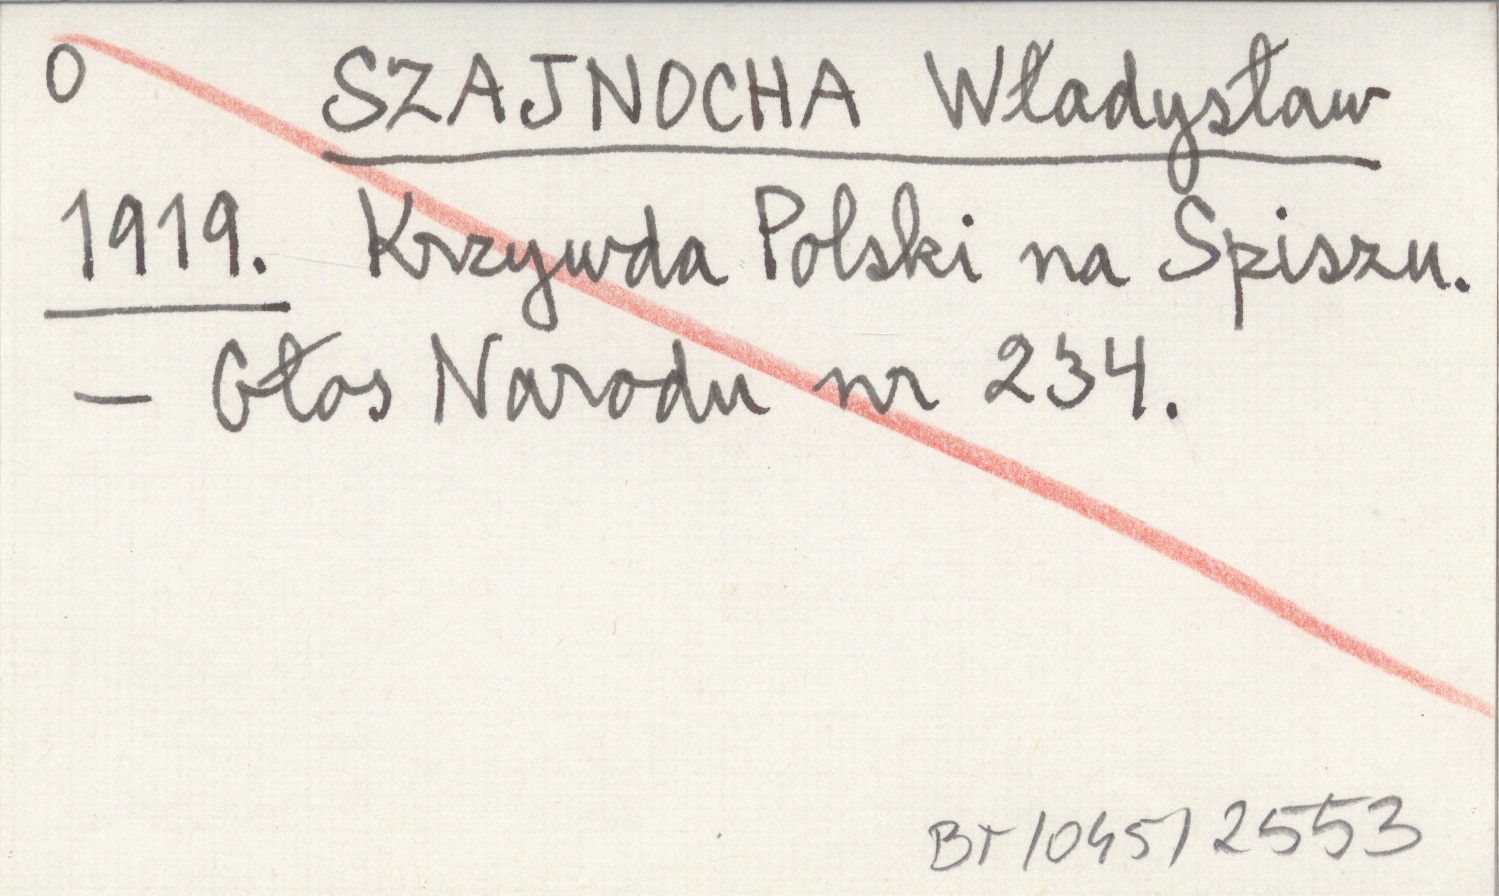 O SZAJNOCHA Władysław
1919. Krzywda Polski na Spiszu.
– Głos Narodu nr 234.
BT/045/2553